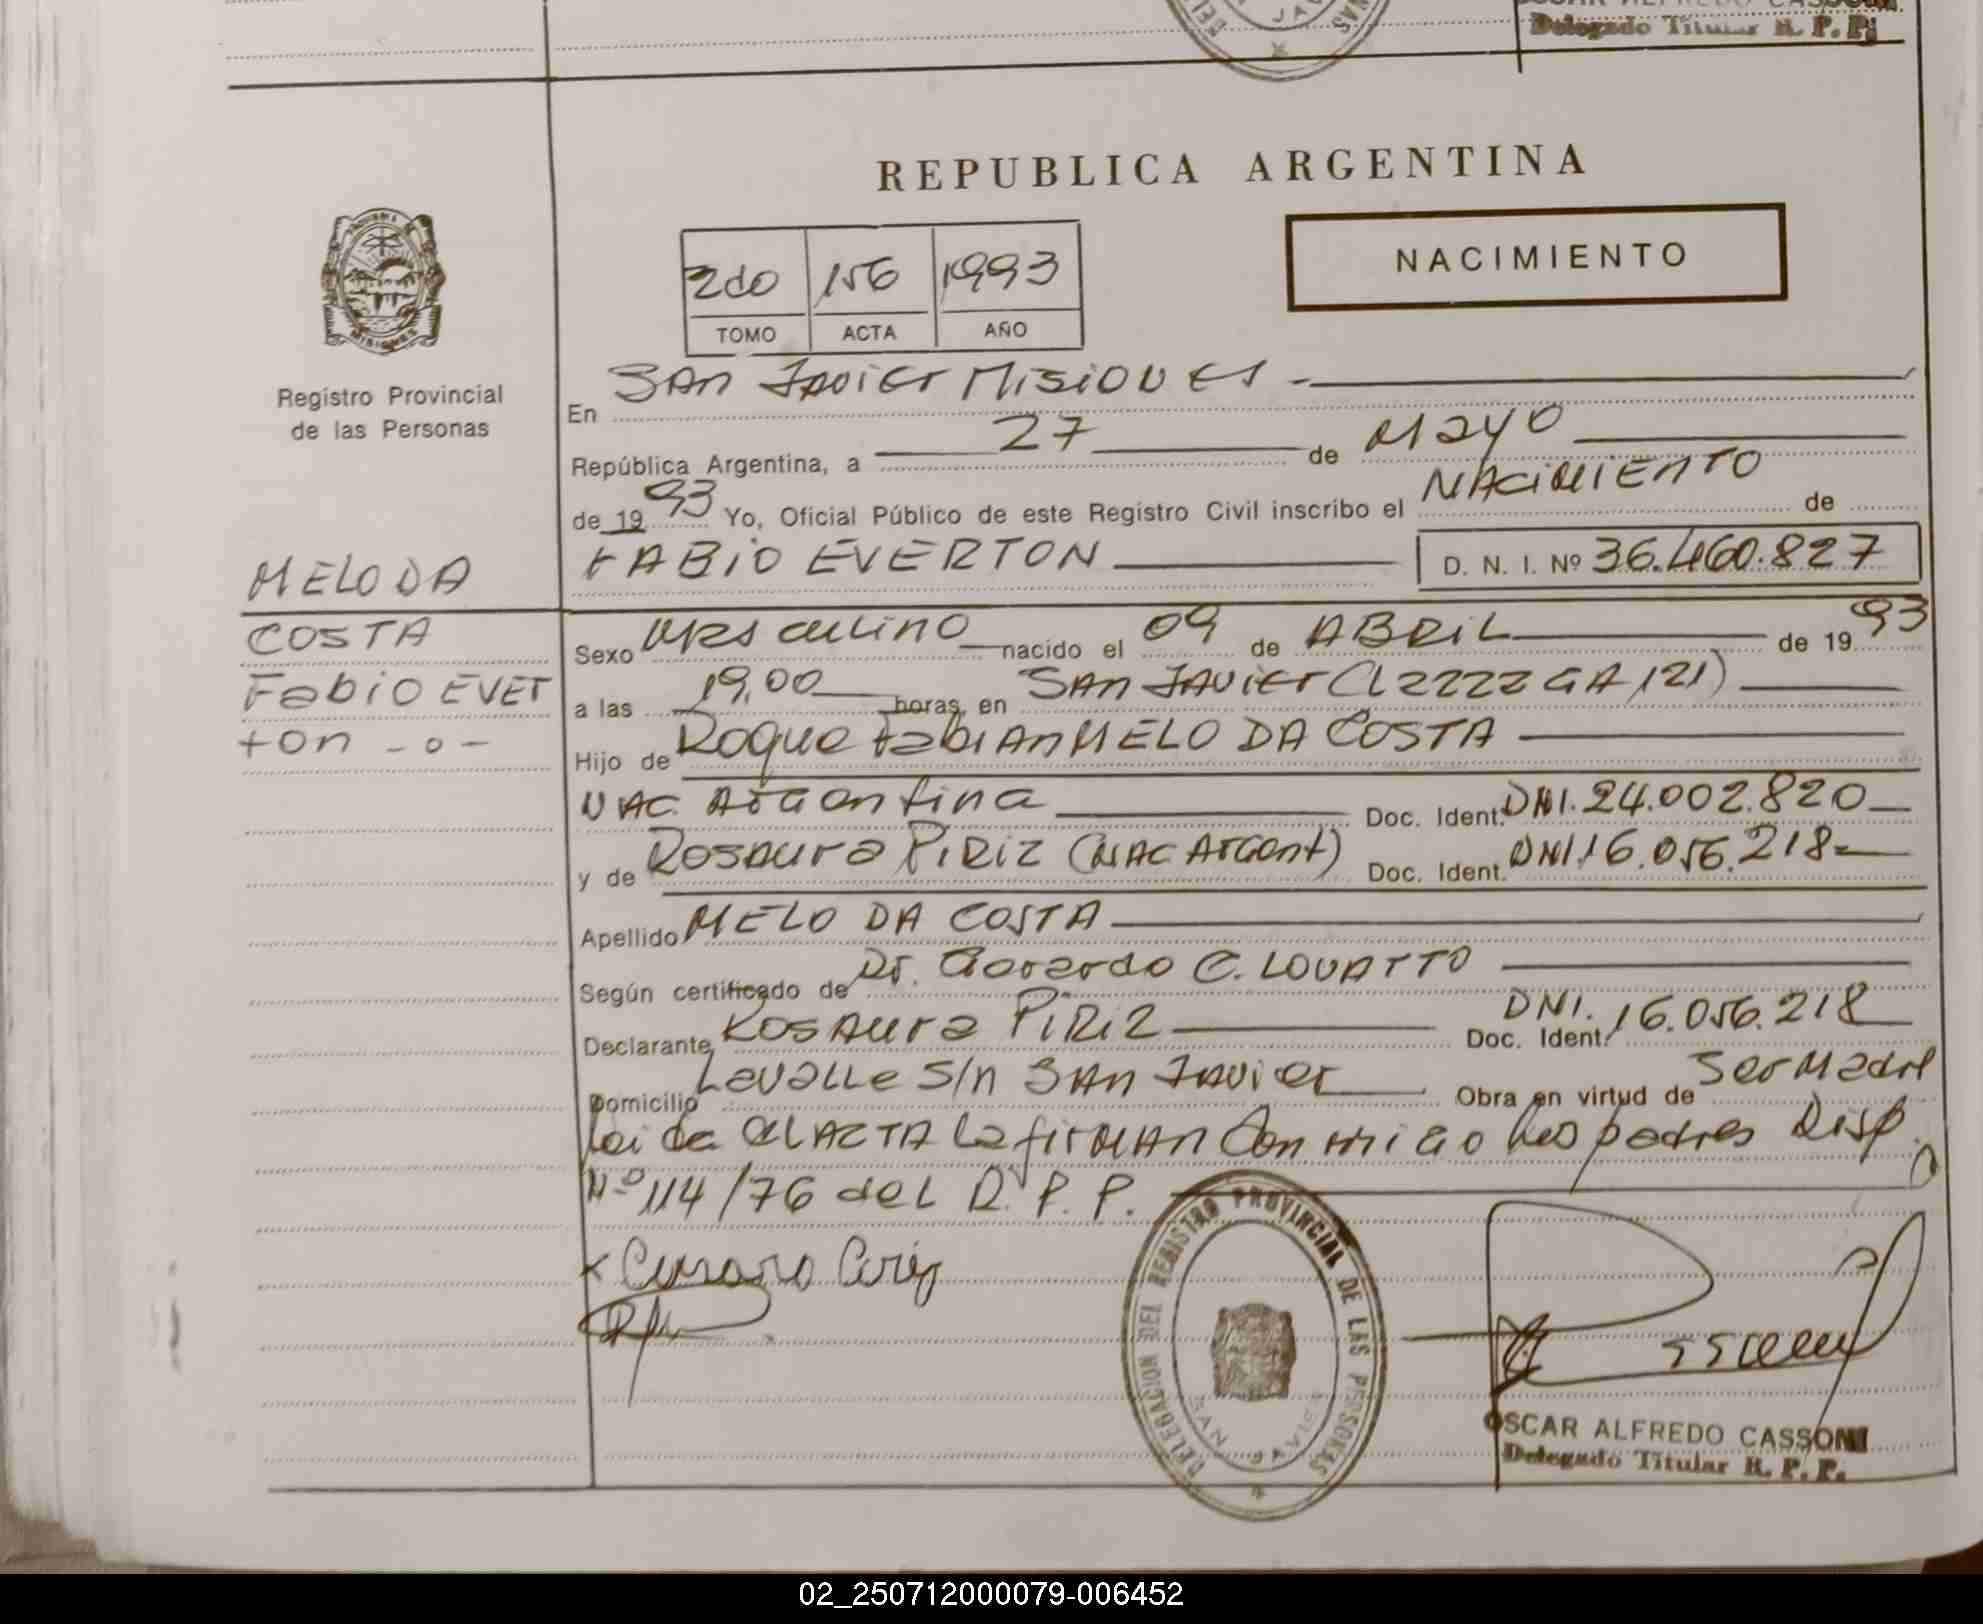 Delegado Titular R. P. P.
REPUBLICA ARGENTINA
2do 156 1993
TOMO ACTA AÑO
NACIMIENTO
MISIONES
Registro Provincial
de las Personas
En SAn JAvier MisioNes
República Argentina, a 27 de Mayo
de 1993 Yo, Oficial Público de este Registro Civil inscribo el NACiMiEnTO de
FABiO EVERTON D. N. I. Nº 36.460.827
MELO DA
COSTA
Fabio EVER
ton -o-
Sexo Masculino nacido el 09 de ABRiL de 1993
a las 19,00 horas, en SAn JAvier (Lazzaga 121)
Hijo de Roque FabiAn MELO DA COSTA
NAC. Argentina Doc. Ident. DNI. 24.002.820
y de Rosaura PiRiz (NAC Argent) Doc. Ident. DNI. 16.056.218
Apellido MELO DA COSTA
Según certificado de Dr. Gerardo C. LOVATTO
Declarante Rosaura PiRiz Doc. Ident. DNI. 16.056.218
Domicilio Lavalle S/n SAn Javier Obra en virtud de Ser Madre
Leida el ACTA la firmAn Conmigo los padres Disp.
Nº 114/76 del R. P. P.
DELEGACION DEL REGISTRO PROVINCIAL DE LAS PERSONAS
SAN JAVIER
OSCAR ALFREDO CASSONI
Delegado Titular R. P. P.
02_250712000079-006452